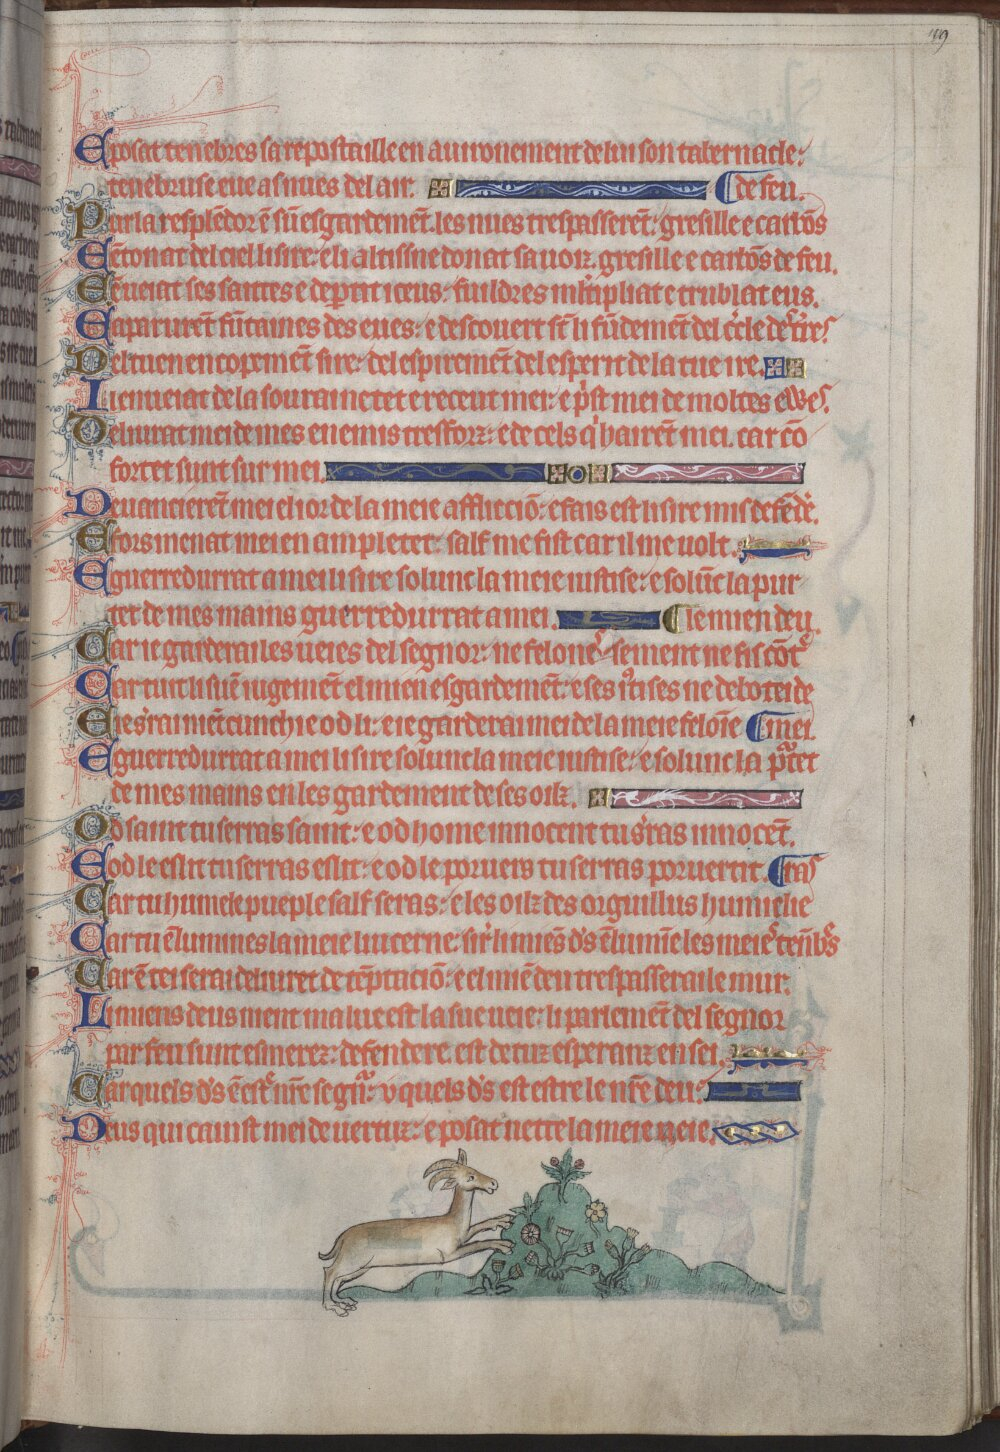 119
E posat tenebres sa repostaille en auironement de lui son tabernacle:
tenebruse eue as nues del air. de feu.
Par la resplēdor ē sū esgardemēt. les nues trespasserēt: gresille e carbōs
E ētonat del ciel li sire: e li altisme donat sa uoiz. gresille e carbōs de feu.
E ēueiat ses saittes e departit iceus: fuildres multipliat e trublat eus.
E aparurēt fūtaines des eues: e descouert sūt li fūdemēt del cercle des terres
Del tuen encopemēt sire: del espiremēt del esperit de la tue ire.
Il enueiat de la souraine tet e receut mei: e prist mei de moltes ewes.
Deliurat mei de mes enemis tresforz: e de cels qi hairēt mei. car cō
fortet sunt sur mei.
Deuancierēt mei el ior de la meie afflicciō: e fais est li sire mis defēdere.
E fors menat mei en ampletet: salf me fist car il me uolt.
E guerredurrat a mei li sire solunc la meie iustise: e solūc la pur
tet de mes mains guerredurrat a mei. le mien deu.
Car ie garderai les ueies del segnor: ne felonessement ne fis cōtre
Car tuit li suē iugemēt el mien esgardemēt: e ses iustises ne debotei de
E ie serai niēt cunchie od li: e ie garderai mei de la meie felonie mei.
E guerredurrat a mei li sire solunc la meie iustise: e solunc la purtet
de mes mains en les gardement de ses oilz.
Od saint tu serras saint: e od home innocent tu serras innocēt.
E od le eslit tu serras eslit: e od le poruers tu serras poruertit. ras
Car tu humele pueple salf feras: e les oilz des orguillus humelie
Car tu ēlumines la meie lucerne: sire li miens deus ēlumine les meies tenebres
Car ē tei serai deliuret de tēptaciō: e el miē deu trespasserai le mur.
Li miens deus nient malue est la sue ueie: li parlemēt del segnor
par feu sunt esmerez: defendere est de tuz esperanz en sei.
Car quels deus ē estre nostre segnor: v quels deus est estre le nostre deu:
Deus qui cainst mei de uertuz: e posat nette la meie ueie.